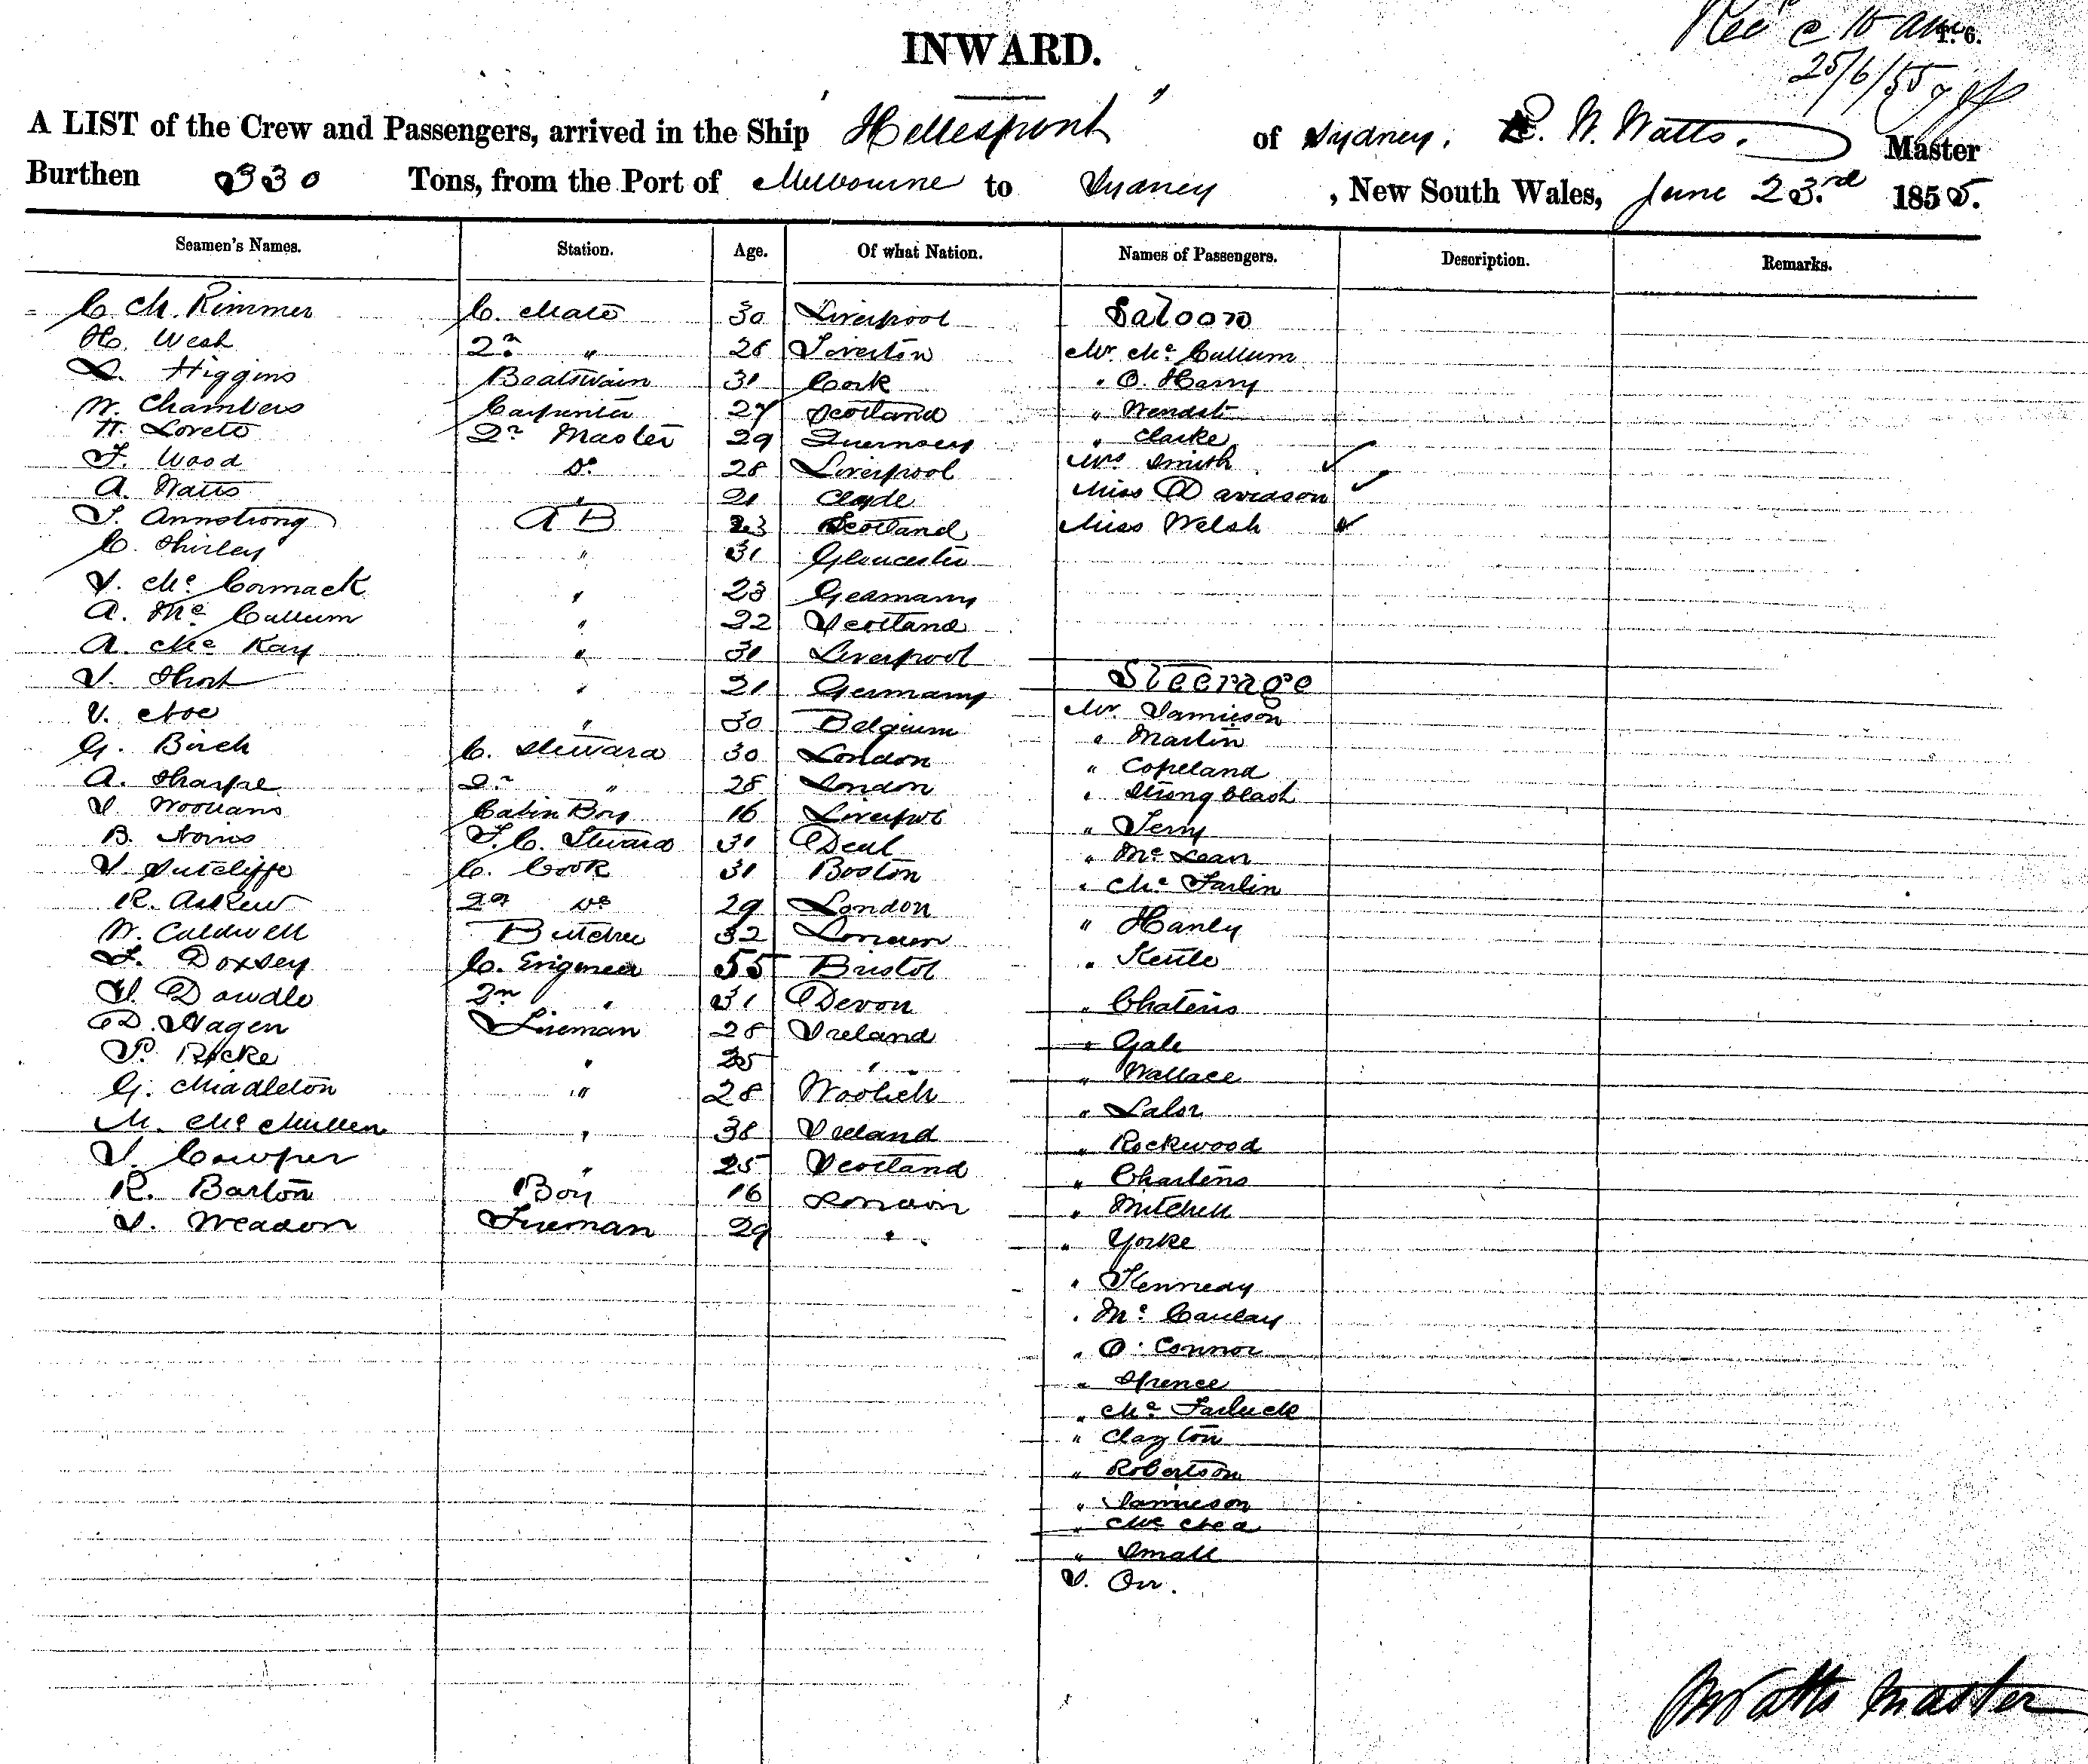 INWARD.
Rec @ 10 am
P. 6.
25/6/55
A LIST of the Crew and Passengers, arrived in the Ship "Hellespont" of Sydney, W. Watts. Master
Burthen 330 Tons, from the Port of Melbourne to Sydney, New South Wales, June 23.rd 1855.
Seamen's Names. Station. Age. Of what Nation. Names of Passengers. Description. Remarks.
C M. Rimmer C. Mate 30 Liverpool Saloon
H. West 2n " 28 Mr. Mc Cullum
Higgins Boatswain 31 Cork " O. Harry
W. Chambers Carpenter 27 Scotland "
H. Loreto Qr Master 29 Guernsey " Clarke
Wood Do 28 Liverpool Mrs Smith ✓
A. Watts " 21 Clyde Miss Davidson ✓
Armstrong A B 23 Scotland Miss Welsh ✓
C. Shirley " 31 Gloucester
J. Mc Cormack " 23 Germany
A. Mc Cullum " 22 Scotland
A. Mc Kay " 31 Liverpool
J. Short " 21 Germany Steerage
J. Noe " 30 Belgium Mr. Jamieson
G. Birch C. Steward 30 London " Martin
A. Sharpe 2n " 28 London " Copeland
J. Cabin Boy 16 Liverpol "
B. Norris F. C. Steward 31 Deal " Terry
J. Sutcliffe C. Cook 31 Boston " Mc Lean
R. Askew 2n Do 29 London " Mc Farlin
W. Caldwell Butcher 32 London " Hanly
Doxsey C. Engineer 55 Bristol " Kettle
J. Dowdle 2n " 31 Devon "
D. Hagen Fireman 28 Ireland " Gale
P. " 25 " " Wallace
G. Middleton " 28 Woolich " Lalor
M. Mc Mullen " 38 Ireland " Rockwood
J. Cowper " 25 Scotland " Charteris
R. Barton Boy 16 London " Mitchell
J. Weadon Fireman 29 " " Yorke
" Kennedy
" Mc Caulay
" O'Connor
" Spence
" Mc
" Clayton
" Robertson
" Jamieson
" Mc Nea
" Small
J. Orr.
Watts Master